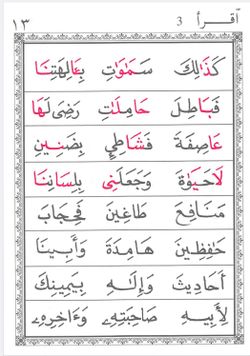 ١٣ 3 اقرأ
كَذَٰلِكَ سَمَٰوَٰتِ بِـَٔالِهَتِنَا
فَبَاطِلَ حَامِلَاتِ رَضِيَ لَهَا
عَاصِفَةَ فَشَاطِئِ بِضَنِينٍ
لَاحَيَوٰةَ وَجَعَلَنِي بِلِسَانِنَا
مَنَافِعَ طَاغِينَ فَحِجَابَ
حَفِظِينَ هَامِدَةَ وَأَبِينَا
أَحَادِيثَ وَإِلَٰهِ بِيَمِينِكَ
لِأَبِيهِ صَاحِبَتِهِۦ وَءَاخِرِهِۦ